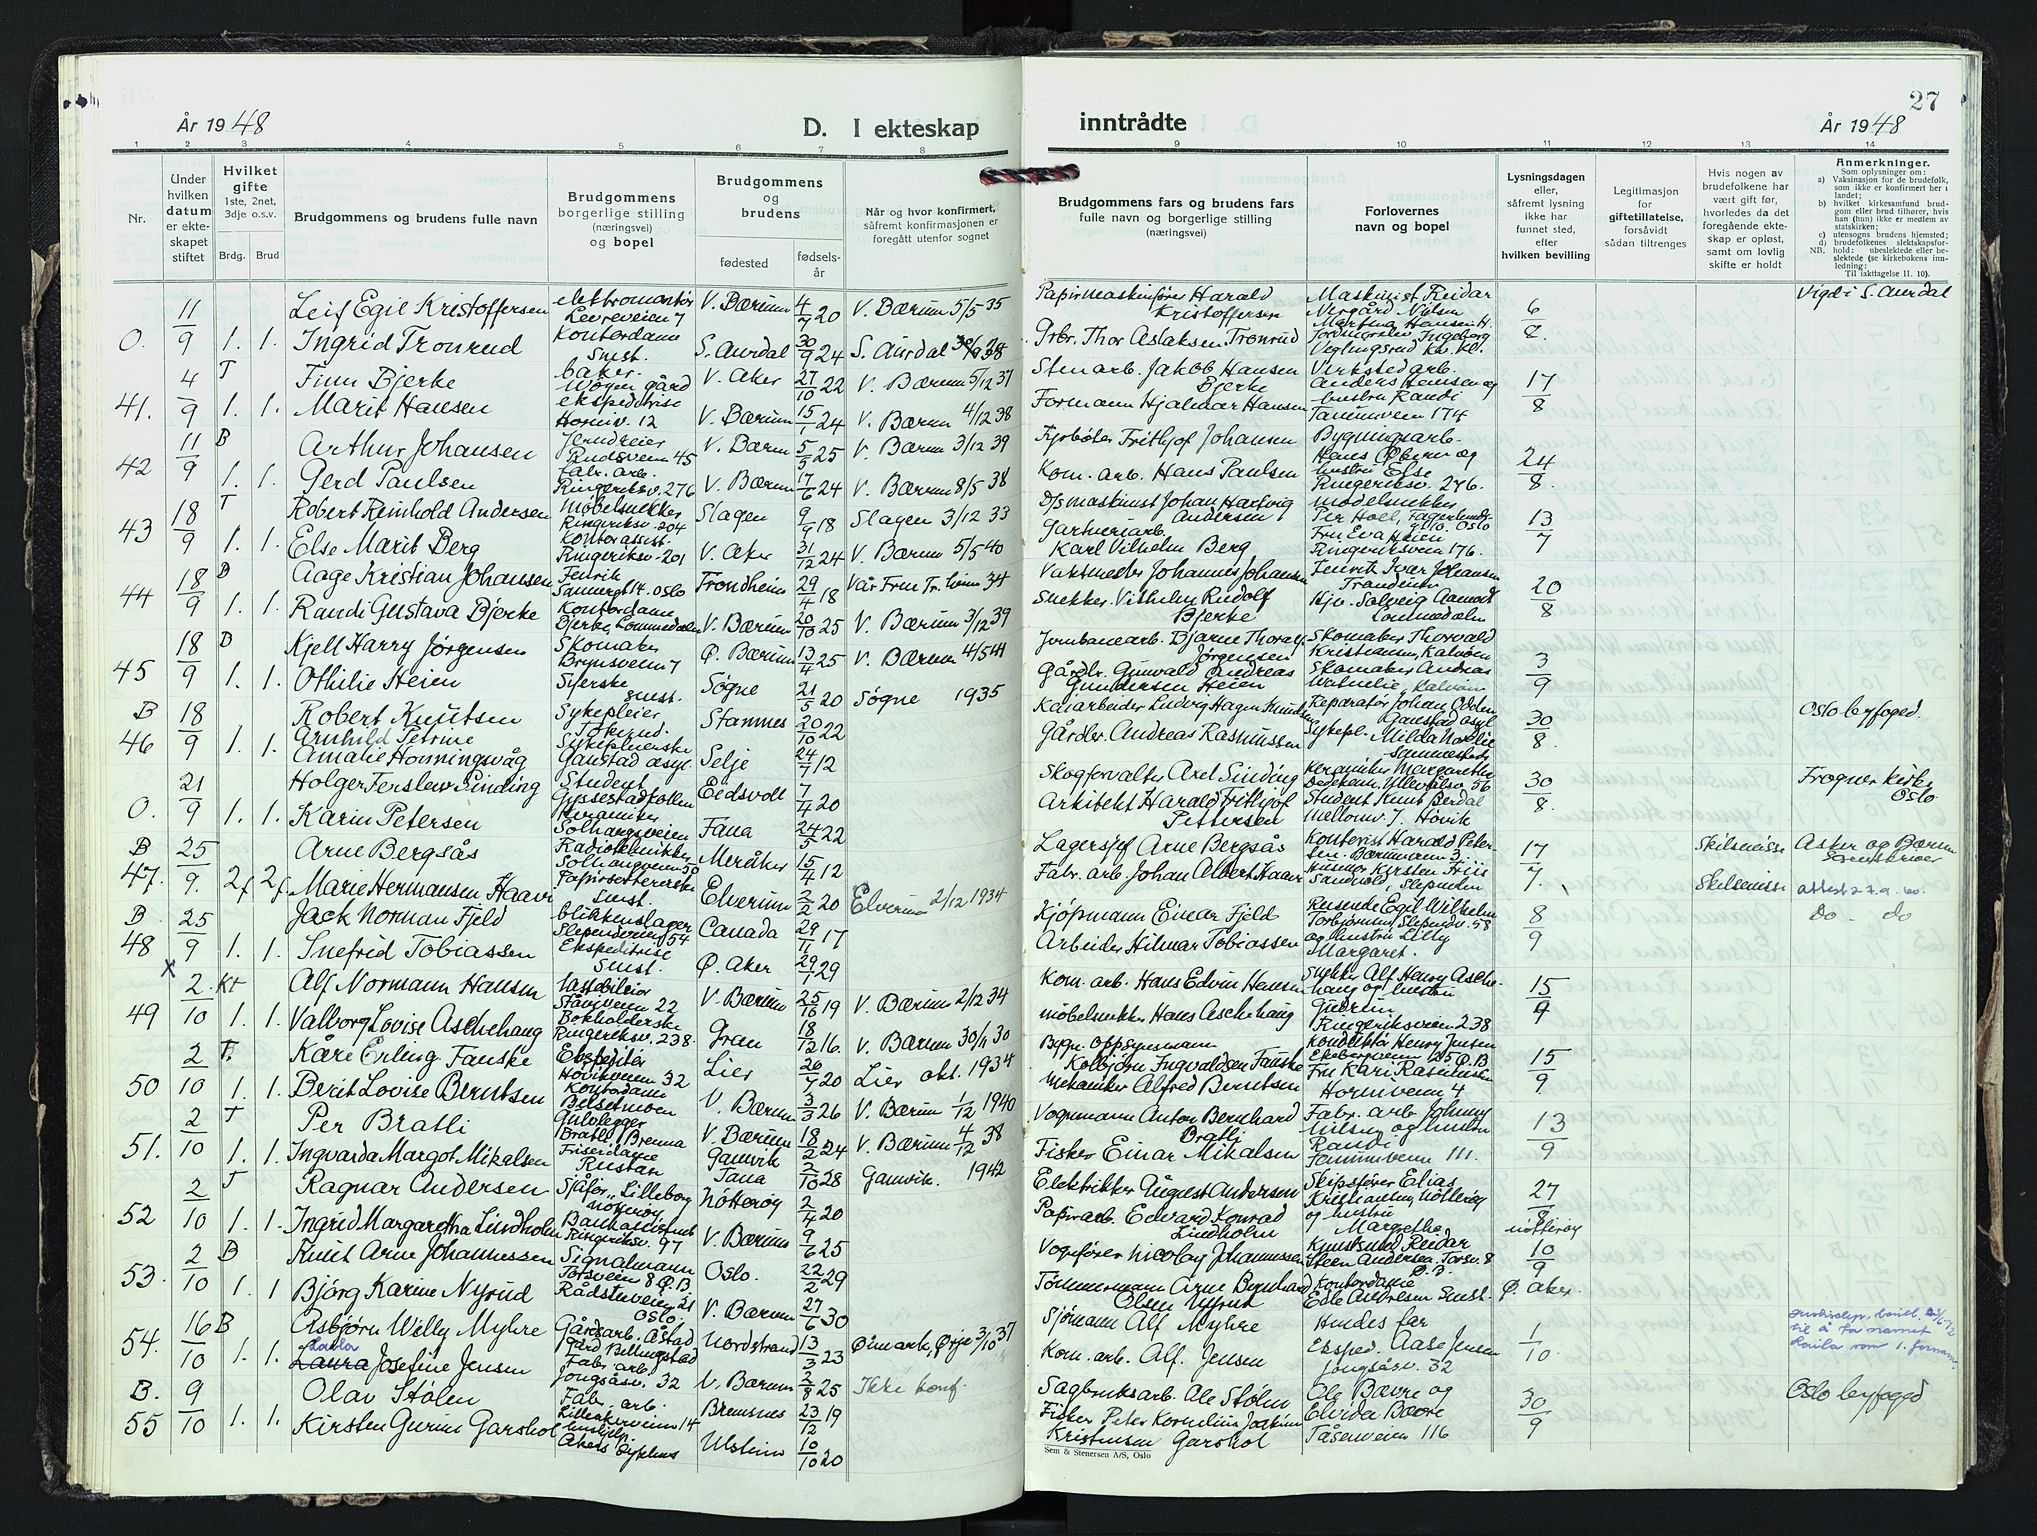 27
År 1948
D. I ekteskap
inntrådte
År 1948
1 2 3 4 5 6 7 8 9 10 11 12 13 14
Nr.
Under hvilken datum er ekteskapet stiftet
Hvilket gifte
1ste, 2net, 3dje o.s.v.
Brdg. Brud
Brudgommens og brudens fulle navn
Brudgommens borgerlige stilling (næringsvei) og bopel
Brudgommens og brudens
fødested
fødselsår
Når og hvor konfirmert, såfremt konfirmasjonen er foregått utenfor sognet
Brudgommens fars og brudens fars fulle navn og borgerlige stilling (næringsvei)
Forlovernes navn og bopel
Lysningsdagen eller, såfremt lysning ikke har funnet sted, efter hvilken bevilling
Legitimasjon for giftetillatelse, forsåvidt sådan tiltrenges
Hvis nogen av brudefolkene har vært gift før, hvorledes da det foregående ekteskap er opløst, samt om lovlig skifte er holdt
Anmerkninger.
Som oplysninger om:
a) Vaksinasjon for de brudefolk, som ikke er konfirmert her i landet;
b) hvilket kirkesamfund brudgom eller brud tilhører, hvis han (hun) ikke er medlem av statskirken;
c) utensogns brudens hjemsted;
d) brudefolkenes slektskapsforhold: ubeslektede eller beslektede (se kirkebokens innledning:
NB.
Til iakttagelse II. 10).
O. 11/9 1. 1. Leif Egil Kristoffersen elektromontør Levreveien 7 V. Bærum 4/7 20 V. Bærum 5/5 35 Papirmaskinfører Harald Kristoffersen Maskinist Reidar 6/8. Vigd i S. Aurdal
Ingrid Tronrud Kontordame Smst. S. Aurdal 30/9 24 S. Aurdal Grbr. Thor Aslaksen Tronrud
41. 4/9 T 1. 1. Finn Bjerke baker. Wøyen gård V. Aker 27/10 22 V. Bærum 5/12 37 Stenarb. Jakob Hansen Bjerke Verkstedarb. Anders Hansen og hustru Randi Tanumveien 174 17/8
Marit Hansen ekspeditrise Horniv. 12 V. Bærum 15/1 24 V. Bærum 4/12 38 Formann Hjalmar Hansen
42 11/9 B 1. 1. Arthur Johansen Rudsveien 45 V. Bærum 5/5 25 V. Bærum 3/12 39 Fyrbøter Frithjof Johansen Bygningsarb. Hans Øbern og hustru Else Ringeriksv. 276. 24/8.
Gerd Paulsen Fabr. arb. Ringeriksv. 276 V. Bærum 17/6 24 V. Bærum 8/5 38 Kom. arb. Hans Paulsen
43 18/9 T 1. 1. Robert Reinhold Andersen Møbelsnekker Ringeriksv. 204 Slagen 9/9 18 Slagen 3/12 33 D/s maskinist Johan Hartvig Andersen modelsnekker Per Hoel, Oslo 13/7
Else Marit Berg Kontorassist. Ringeriksv. 201 V. Aker 31/12 24 V. Bærum 5/5 40 Gartneriarb. Karl Vilhelm Berg Fru Eva Heien Ringeriksveien 176.
44 18/9 B 1. 1. Aage Kristian Johansen Fenrik Oslo Trondheim 29/4 18 Vår Frue Tr.heim 34 Vaktmester Johannes Johansen Fenrik Ivar Johansen Trandum 20/8
Randi Gustava Bjerke Kontordame Bjerke, Lommedalen V. Bærum 20/10 25 V. Bærum 3/12 39 Snekker Vilhelm Rudolf Bjerke Hjv. Solveig Aamodt Lommedalen
45 18/9 B 1. 1. Kjell Harry Jørgensen Skomaker Brynsveien 7 Ø. Bærum 13/4 25 V. Bærum 4/5 41 Jernbanearb. Bjarne Thoralf Jørgensen Skomaker Thorvald Kristiansen, Kalvøen 3/9
Othilie Heien Syerske Smst. Søgne 21/5 20 Søgne 1935 Gårdbr. Gunvald Andreas Gundersen Heien Skomaker Andreas
B 46 18/9 1. 1. Robert Knutsen Sykepleier Tokerud. Stamnes 20/10 22 Kaiarbeider Ludvig Hagen Knutsen Reparatør Johan Odden Gaustad asyl 30/8. Oslo byfoged.
Arnhild Petrine Amalie Honningsvåg Sykepleierske Gaustad asyl. Selje 24/7 12 Gårdbr. Andreas Rasmussen Sykepl. Milda Nordlie
O. 21/9 1. 1. Holger Ferslew Sinding Student Gyssestadkollen Eidsvoll 7/4 20 Skogforvalter Axel Sinding Keramiker Margarethe Ullevålsv. 56 30/8. Frogner kirke Oslo
Karin Petersen Keramiker Solhaugveien Fana 24/5 22 Arkitekt Harald Frithjof Pettersen Student Knut Berdal Mellomv. 7. Høvik
B 47. 25/9. 2f 2f. Arne Bergsås Radiotekniker Solhaugveien 50 Meråker 15/4 12 Lagersjef Arne Bergsås Kontorist Harald Petersen Bærumveien 3, 17/7. Skilsmisse Asker og Bærum Sorenskriver
Marie Hermansen Haavi Papirsortererske Smst. Elverum 2/2 20 Elverum 2/12 1934 Fabr. arb. Johan Albert Haavi Kirsten Friis Sandvold, Slependen Skilsmisse attest 27.9.60.
B. 48 25/9 1. 1. Jack Norman Fjeld blikkenslager Slependveien 54 Canada 29/11 17 Kjøpmann Einar Fjeld Reisende Egil Wilhelm Torbjørnsen, Slependv. 58 og hustru Lilly Margaret. 8/9 Do - do
Snefrid Tobiassen Ekspeditrise Smst. Ø. Aker 29/7 29 Arbeider Hilmar Tobiassen
x 49 2/10 Kt 1. 1. Alf Normann Hansen Lastebileier Ståviveien 22 V. Bærum 25/10 19 V. Bærum 2/12 34 Kom. arb. Hans Edvin Hansen Snekker Alf Henry Aschehaug og hustru Gudrun Ringeriksveien 238 15/9
Valborg Lovise Aschehaug Bokholderske Ringeriksv. 238. Gran 18/12 16. V. Bærum 30/11 30 møbelsnekker Hans Aschehaug
50 2/10 T. 1. 1. Kåre Erling Fauske Ekspeditør Høvikveien 32 Lier 26/7 20 Lier okt. 1934 Bygn. oppsynsmann Kolbjørn Ingvaldsen Fauske Konduktør Henry Jensen Ekebergveien 125 Ø.B. 15/9.
Berit Lovise Berntsen Kontordame Belsetmoen V. Bærum 3/3 26 V. Bærum 1/12 1940 Mekaniker Alfred Berntsen Fru Kari Rasmussen Horniveien 4
51. 2/10 T 1. 1. Per Bratli Gulvlegger Bratli, Brenna V. Bærum 18/2 24 V. Bærum 4/12 38 Vognmann Anton Bernhard Bratli Fabr. arb. Johnny Nilsen og hustru Randi Tanumveien 111. 13/9
Ingvarda Margot Mikalsen Friserdame Rustan Gamvik Tana 2/10 28 Gamvik. 1942 Fisker Einar Mikalsen
52 2/10 T 1. 1. Ragnar Andersen Sjåfør, Lilleborg Nøtterøy Nøtterøy 2/4 20 Elektriker August Andersen Skipsfører Elias Kristiansen, Nøtterøy og hustru Margethe 27/8 Nøtterøy
Ingrid Margaretha Lindholm Bankassistent Ringeriksv. 97 V. Bærum 9/6 25 Papirarb. Edvard Konrad Lindholm
53. 2/10 B 1. 1. Knut Arne Johannessen Signalmann Torsveien 8 Ø.B. Oslo. 22/2 29 Vognfører Nicolay Johannessen Kunstsmed Reidar Steen Andersen Torsv. 8 Ø.B. 10/9 Ø. Aker.
Bjørg Karine Nyrud Rådstuveien 21 Oslo V. Bærum 27/6 30 Tømmermann Arne Bernhard Olsen Nyrud Kontordame Edle Andresen Smst.
54. 16/10 B 1. 1. Asbjørn Welly Myhre Gårdsarb. Åstad gård Billingstad Nordstrand 13/3 23 Øimark, Ørje 3/10 37 Sjømann Alf Myhre Hindes far 1/10.
Laila
Laura Josefine Jensen Fabr. arb. Jongsåsv. 32 V. Bærum 2/8 25 Ikke konf. Kom. arb. Alf. Jensen Eksped. Aase Jensen Jongsåsv. 32
til å ta navnet Laila som 1. fornavn.
B. 55 9/10 1. 1. Olav Stølen Fabr. arb. Lilleakerveien 14 Bremsnes 23/12 19 Sagbruksarb. Ole Stølen Ole Bævre og Elvida Bævre Tåsenveien 116 30/9 Oslo byfoged
Kirsten Gurine Garshol Akers sykehus Ulstein 10/10 20 Fisker Peter Kornelius Joakim Kristensen Garshol
Sem & Stenersen A/S, Oslo